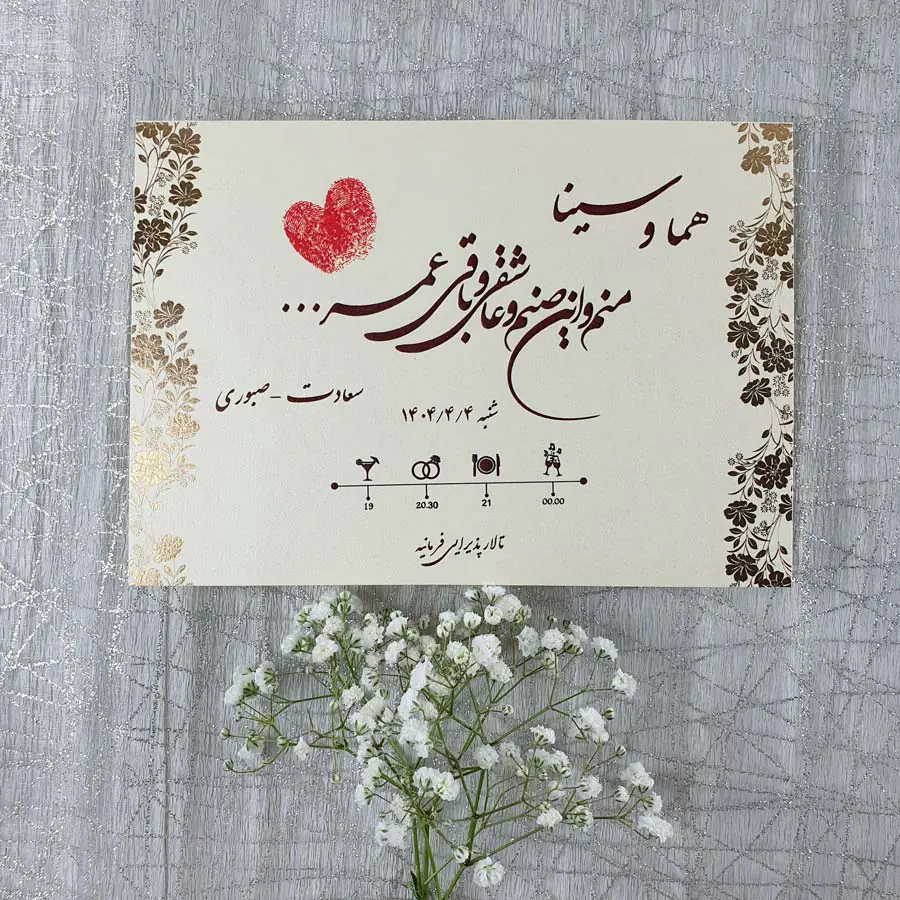 هما و سینا
منم و این صنم و عاشقی و باقی عمر...
سعادت - صبوری
شنبه ۱۴۰۴/۴/۴
19 20.30 21 00.00
تالار پذیرایی فرمانیه